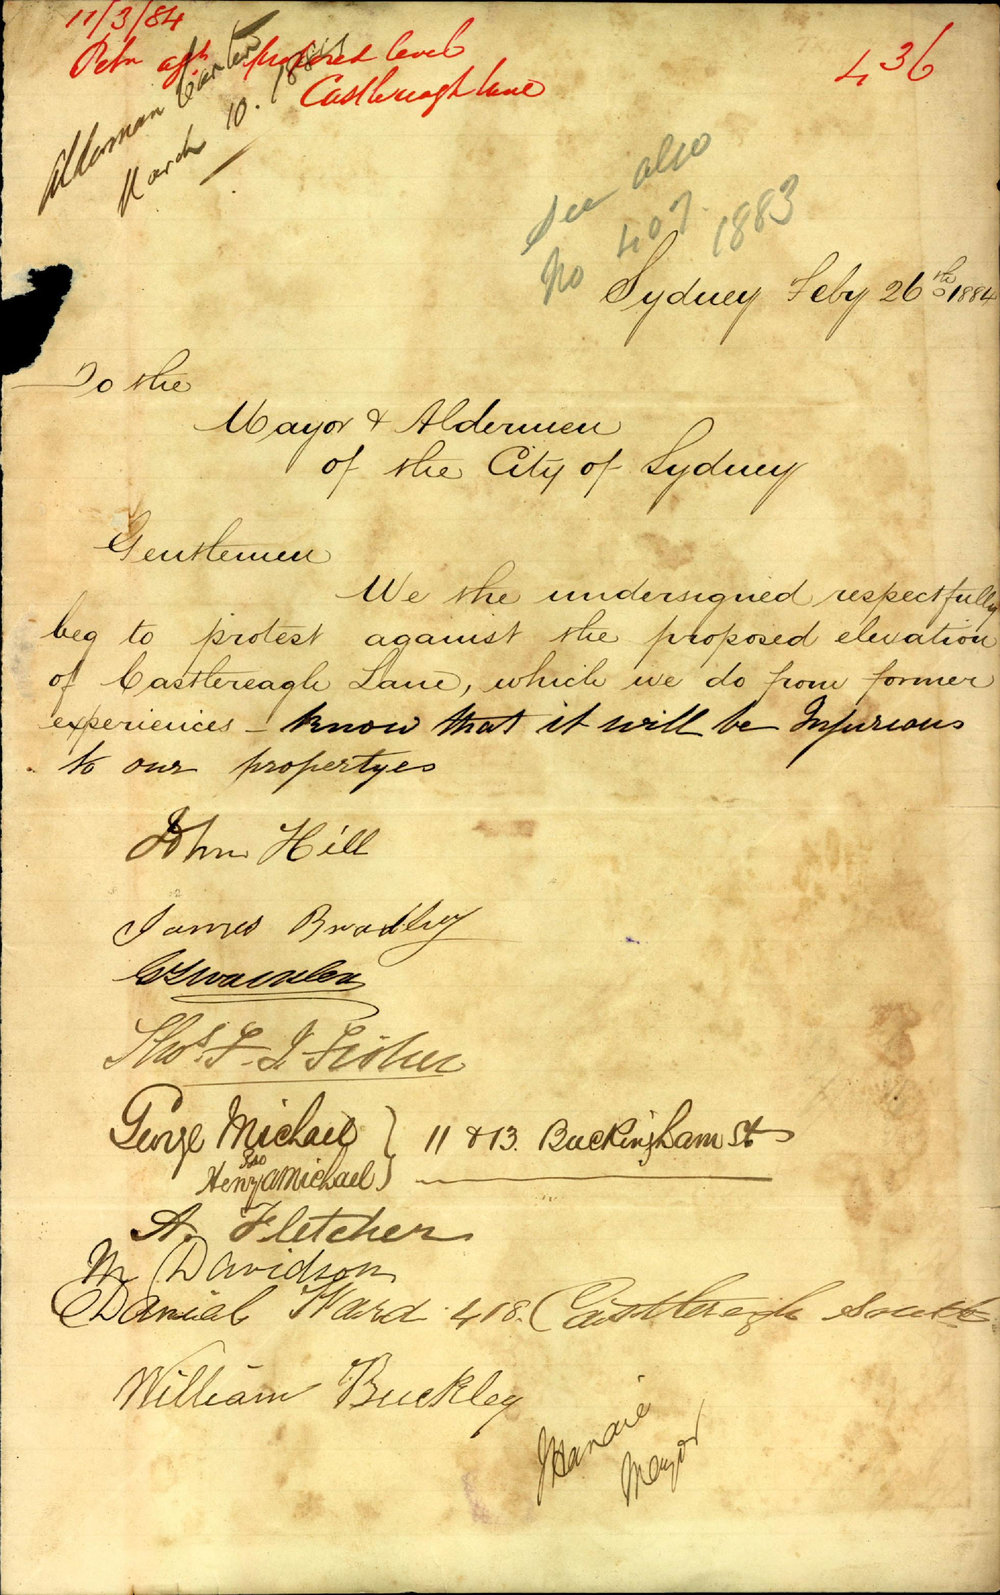 11/3/84
Petn agst proposed level
Castlereagh Lane
436
Alderman Carter
March 10. 1884
See also
No 407. 1883
Sydney Feby 26th 1884
To the
Mayor & Aldermen
of the City of Sydney
Gentlemen
We the undersigned respectfully
beg to protest against the proposed elevation
of Castlereagh Lane, which we do from former
experiences - know that it will be Injurious
to our propertyes
John Hill
James Bradley
Thos. F. J. Fisher
George Michael } 11 & 13. Buckingham St
Henry A Michael
A. Fletcher
M Davidson
Danial Ward 418. Castlereagh South
William Buckley
Mayor